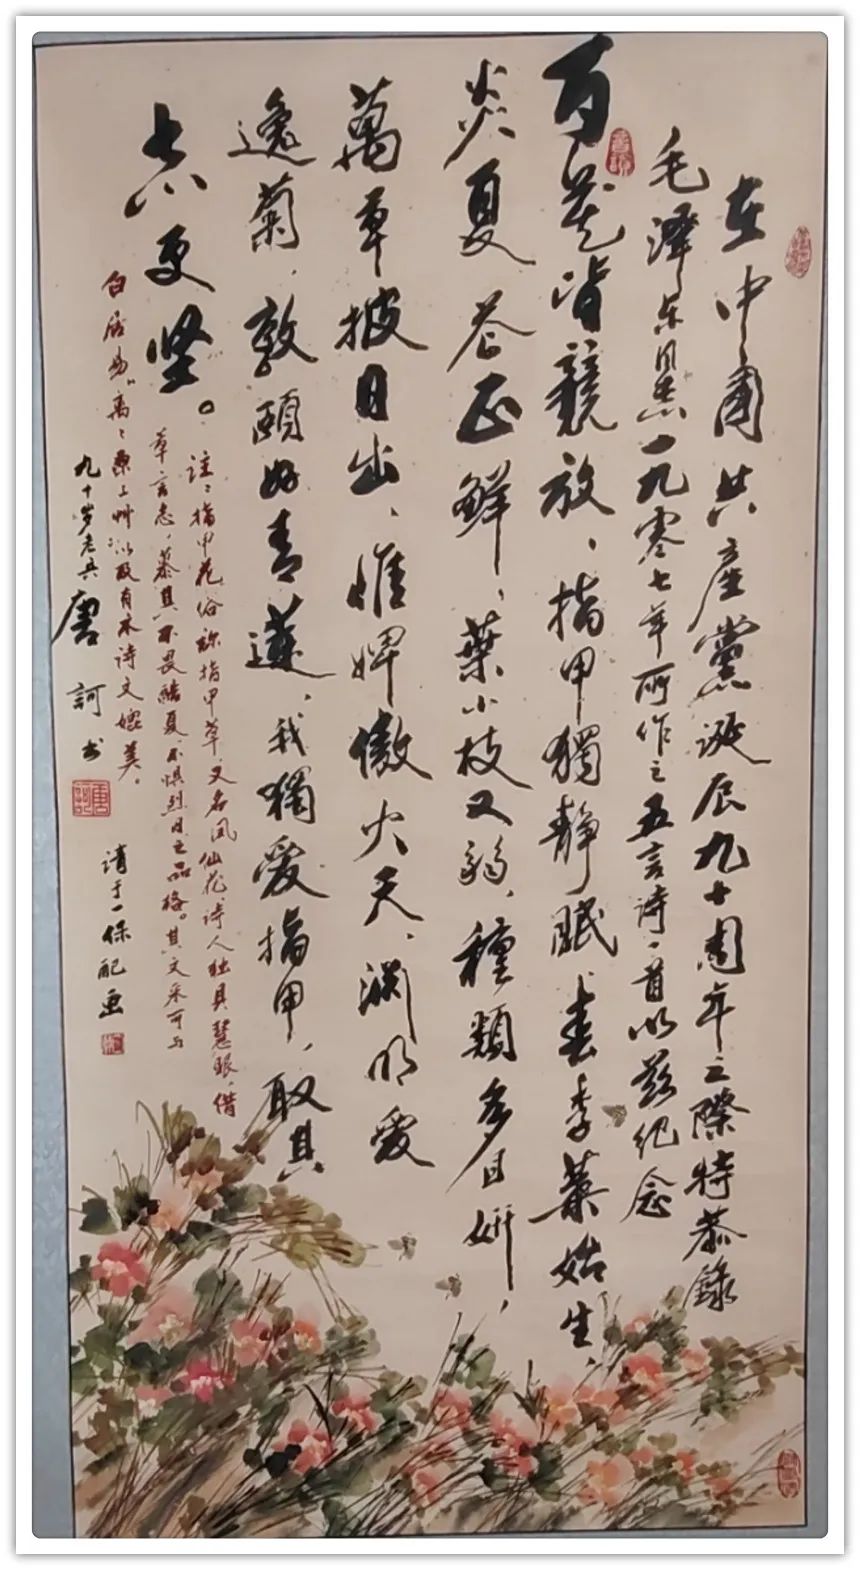 在中国共产党诞辰九十周年之际特恭录
毛泽东同志一九零七年所作之五言诗一首以兹纪念
百花皆競放、指甲獨靜眠、春季葉始生、
炎夏花正鮮、葉小枝又弱、種類多且妍、
萬草披日出、惟婢傲火天、渊明爱
逸菊、敦颐好青蓮、我獨爱指甲、取其
志更坚。
註：指甲花俗称指甲草，又名凤仙花，诗人独具慧眼，借
草言志，慕其不畏酷夏不惧烈日之品格。其文采可与
白居易。离离原上艸以及有本诗文媲美。
九十岁老兵唐訶书
请于一保配画